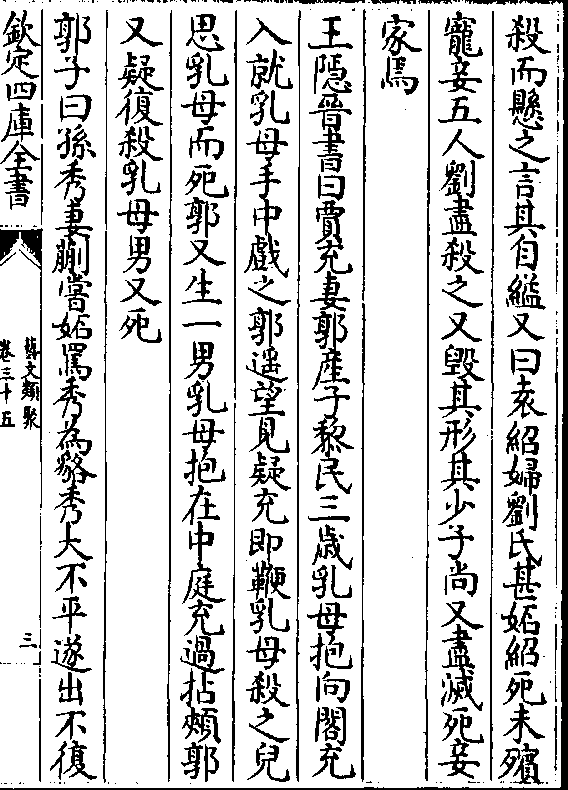 殺而懸之言其自縊又曰袁紹婦劉氏甚妬紹死未殯
寵妾五人劉盡殺之又毀其形其少子尚又盡滅死妾
家焉
王隱晉書曰賈充妻郭産子黎民三歲乳母抱向閤充
入就乳母手中戲之郭遥望見疑充即鞭乳母殺之兒
思乳母而死郭又生一男乳母抱在中庭充過拈頰郭
又疑復殺乳母男又死
郭子曰孫秀妻蒯嘗妬罵秀為貉秀大不平遂出不復
欽定四庫全書
藝文類聚
卷三十五
三